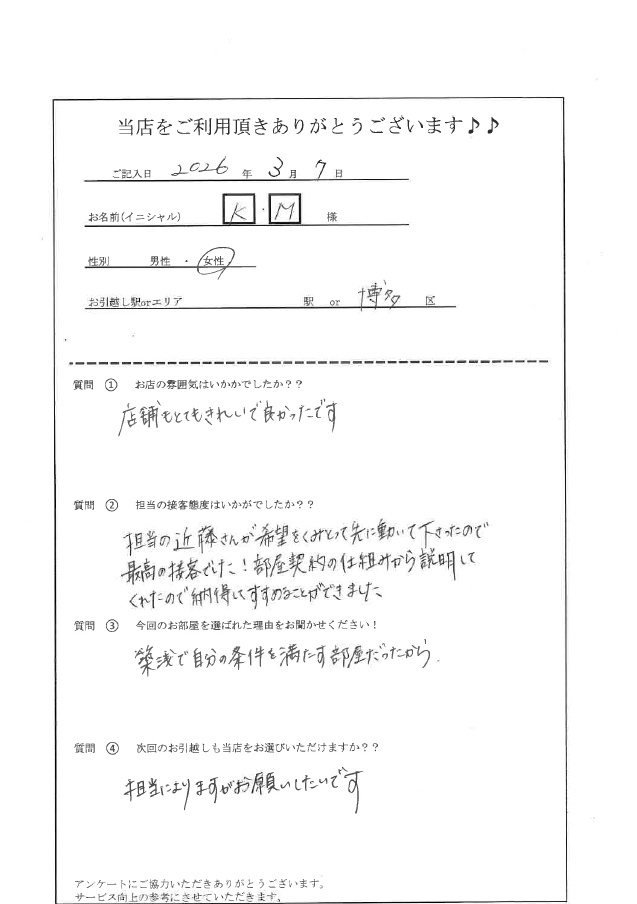 当店をご利用頂きありがとうございます♪♪
ご記入日 2026 年 3 月 7 日
お名前(イニシャル) K ・ M 様
性別 男性 ・ 女性
お引越し駅orエリア 駅 or 博多 区
質問 ① お店の雰囲気はいかかでしたか??
店舗もとてもきれいで良かったです
質問 ② 担当の接客態度はいかがでしたか??
担当の近藤さんが希望をくみとって先に動いて下さったので
最高の接客でした!部屋契約の仕組みから説明して
くれたので納得してすすめることができました
質問 ③ 今回のお部屋を選ばれた理由をお聞かせください!
築浅で自分の条件を満たす部屋だったから.
質問 ④ 次回のお引越しも当店をお選びいただけますか??
担当によりますがお願いしたいです
アンケートにご協力いただきありがとうございます。
サービス向上の参考にさせていただきます。